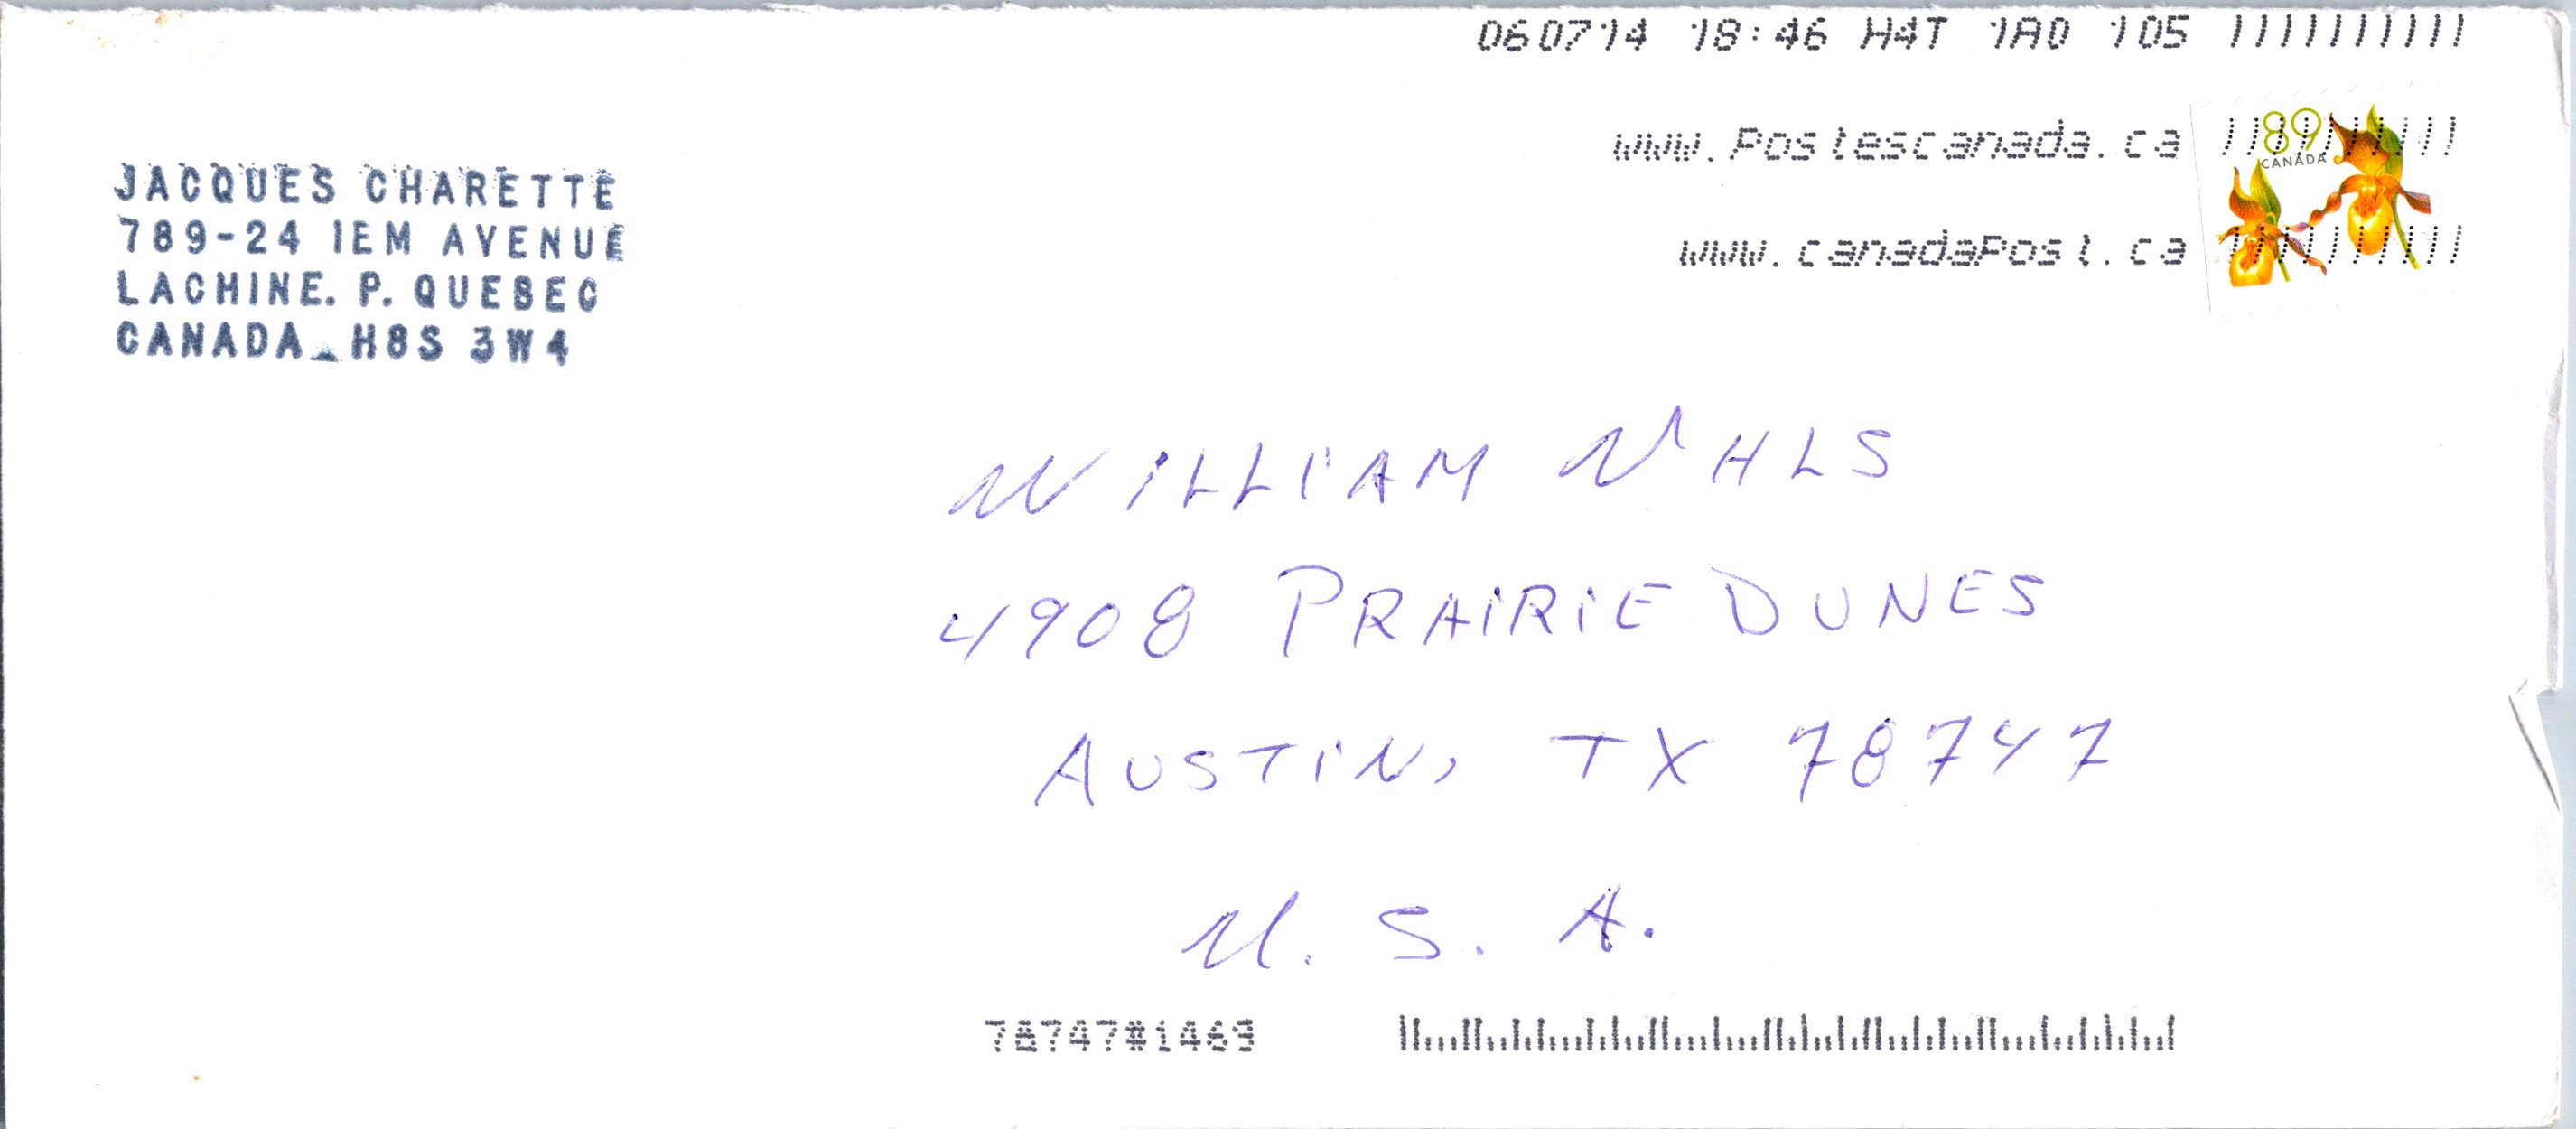 060714 18:46 H4T 1A0 105
www.Postescanada.ca
89
CANADA
www.canadaPost.ca
JACQUES CHARETTE
789-24 IEM AVENUE
LACHINE. P. QUEBEC
CANADA H8S 3W4
WILLIAM
4908 PRAIRIE DUNES
AUSTIN, TX 78747
U. S. A.
78747#1469